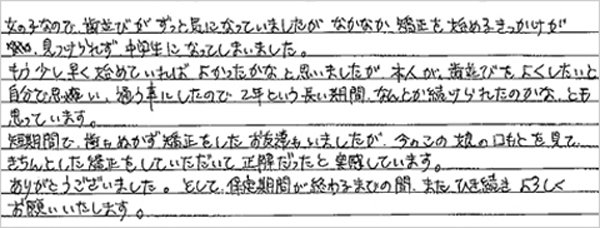 女の子なので、歯並びがずっと気になっていましたが なかなか 矯正を始めるきっかけが
見つけられず 中学生になってしまいました。
もう少し早く始めていれば よかったかなと思いましたが 本人が、歯並びをよくしたいと
自分で思い、通う事にしたので 2年という長い期間、なんとか続けられたのかな、とも
思っています。
短期間で、歯もぬかず矯正をしたお友達もいましたが、今のこの娘の口もとを見て、
きちんとした矯正をしていただいて 正解だったと実感しています。
ありがとうございました。そして、保定期間が終わるまでの間、またひき続き よろしく
お願いいたします。